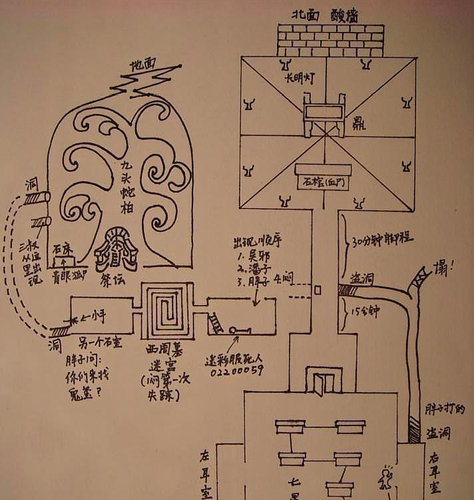 北面 酸墙
地面
长明灯
鼎
九头蛇柏
石棺(血尸)
洞
三叔
从这
里出
现
石床
青眼狐
祭坛
出现顺序
1. 吴邪
2. 潘子
3. 胖子 + 闷
30分钟脚程
盗洞
塌!
15分钟
小手
洞
另一个石室
胖子问:
你们来找
鬼玺?
西周墓
迷宫
(闷第一次
失踪)
迷彩服死人
02200059
胖子打的
盗洞
左耳室
右耳室
七星